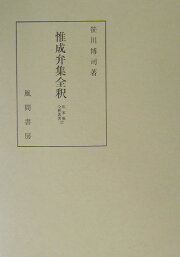 笹川博司著
惟成弁集全釈
私家集全釈叢書
風間書房